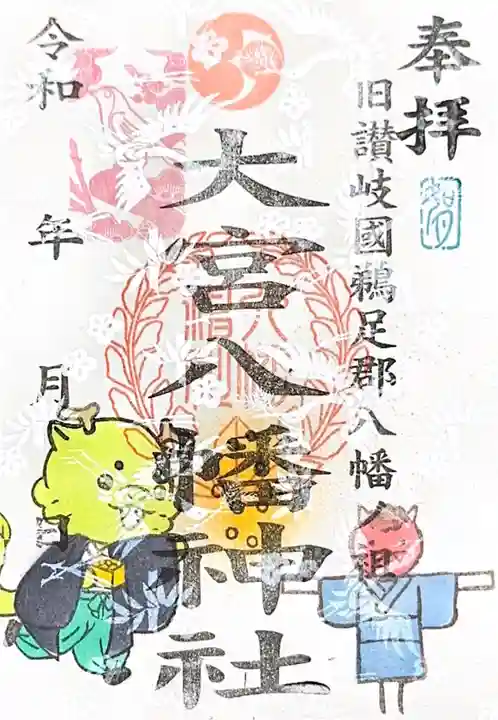 奉拝
旧讃岐國鵜足郡八幡ノ祖
大宮八幡神社
令和 年 月 日